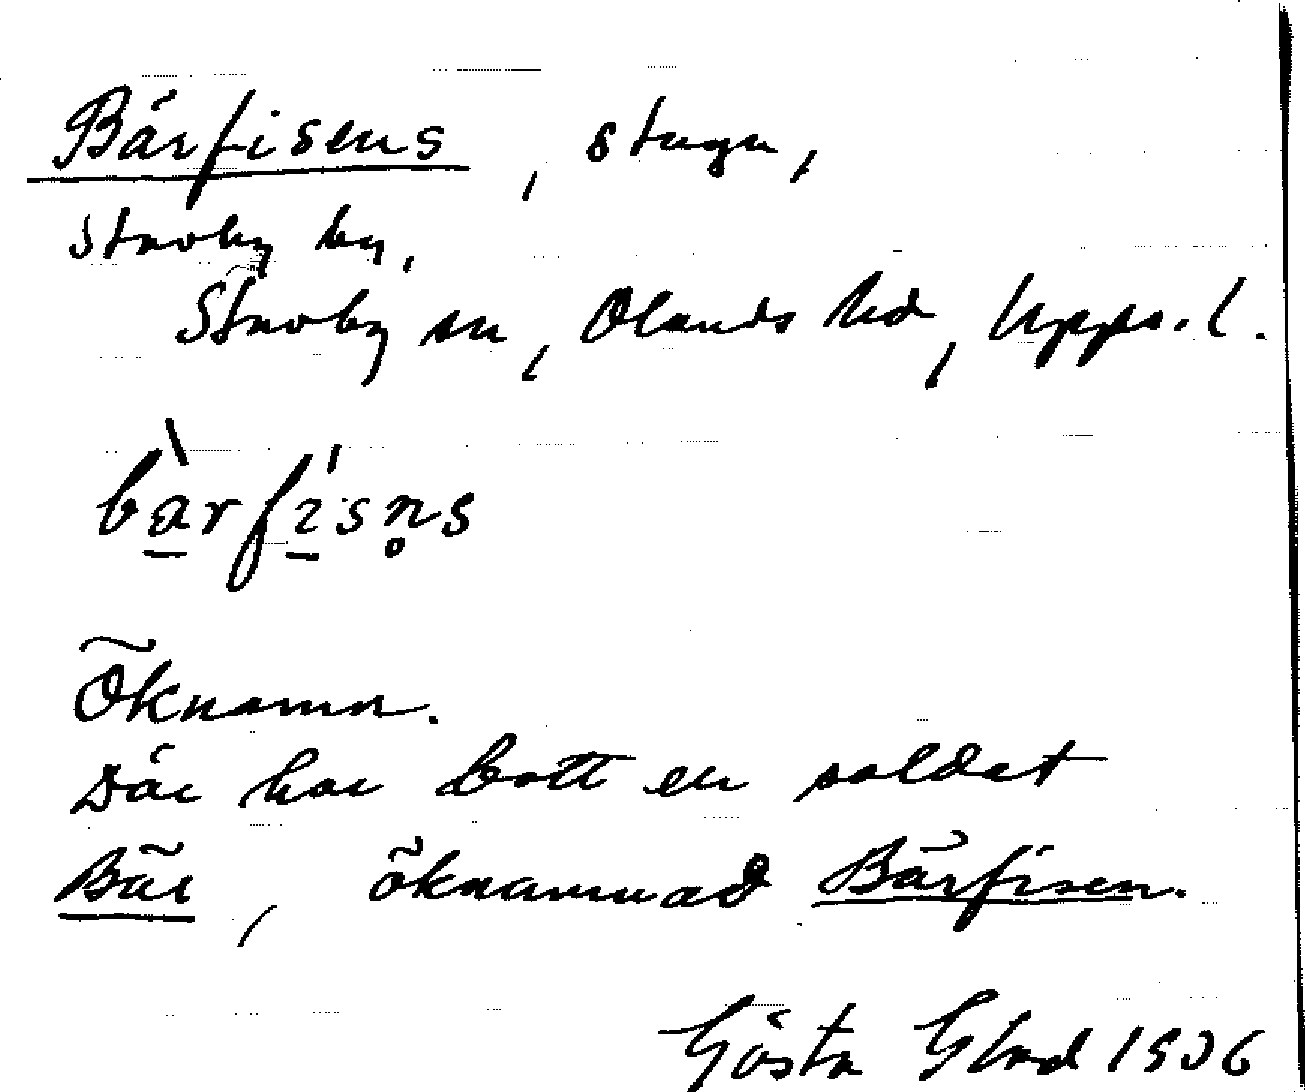 Bärfisens, stuga,
Stavby by,
Stavby sn, Olands hd, Upps. l.
bàrfi̠sn̥s
Öknamn.
Där har bott en soldat
Bär, öknamnad Bärfisen.
Gösta Glad 1936